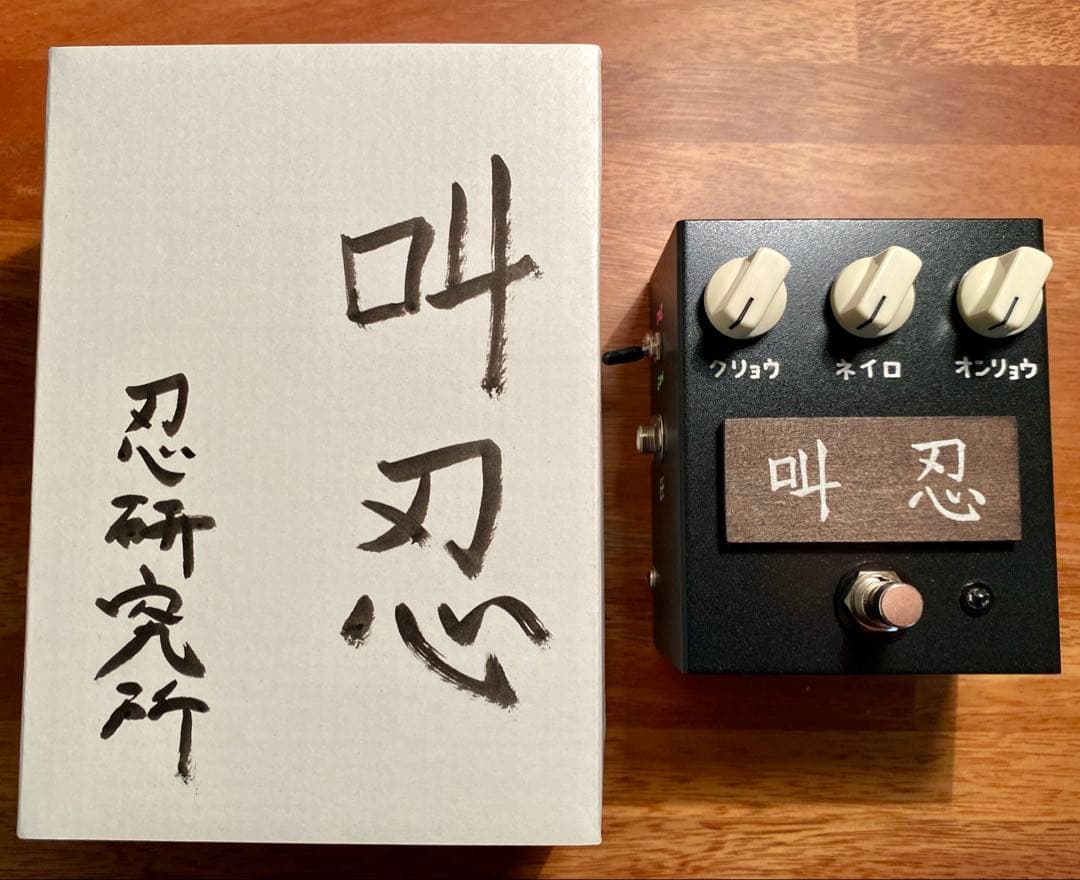 叫忍
忍研究所
クリョウ
ネイロ
オンリョウ
叫 忍